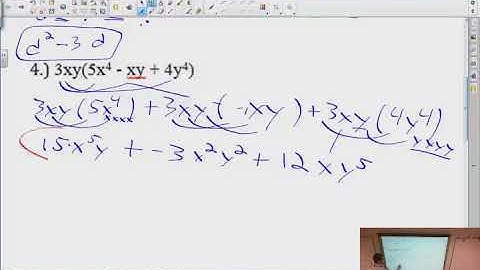 d² - 3d
4.) 3xy(5x⁴ - xy + 4y⁴)
3xy(5x⁴) + 3xy(-1xy) + 3xy(4y⁴)
xxxx yyyy
15·x⁵y + -3x²y² + 12xy⁵